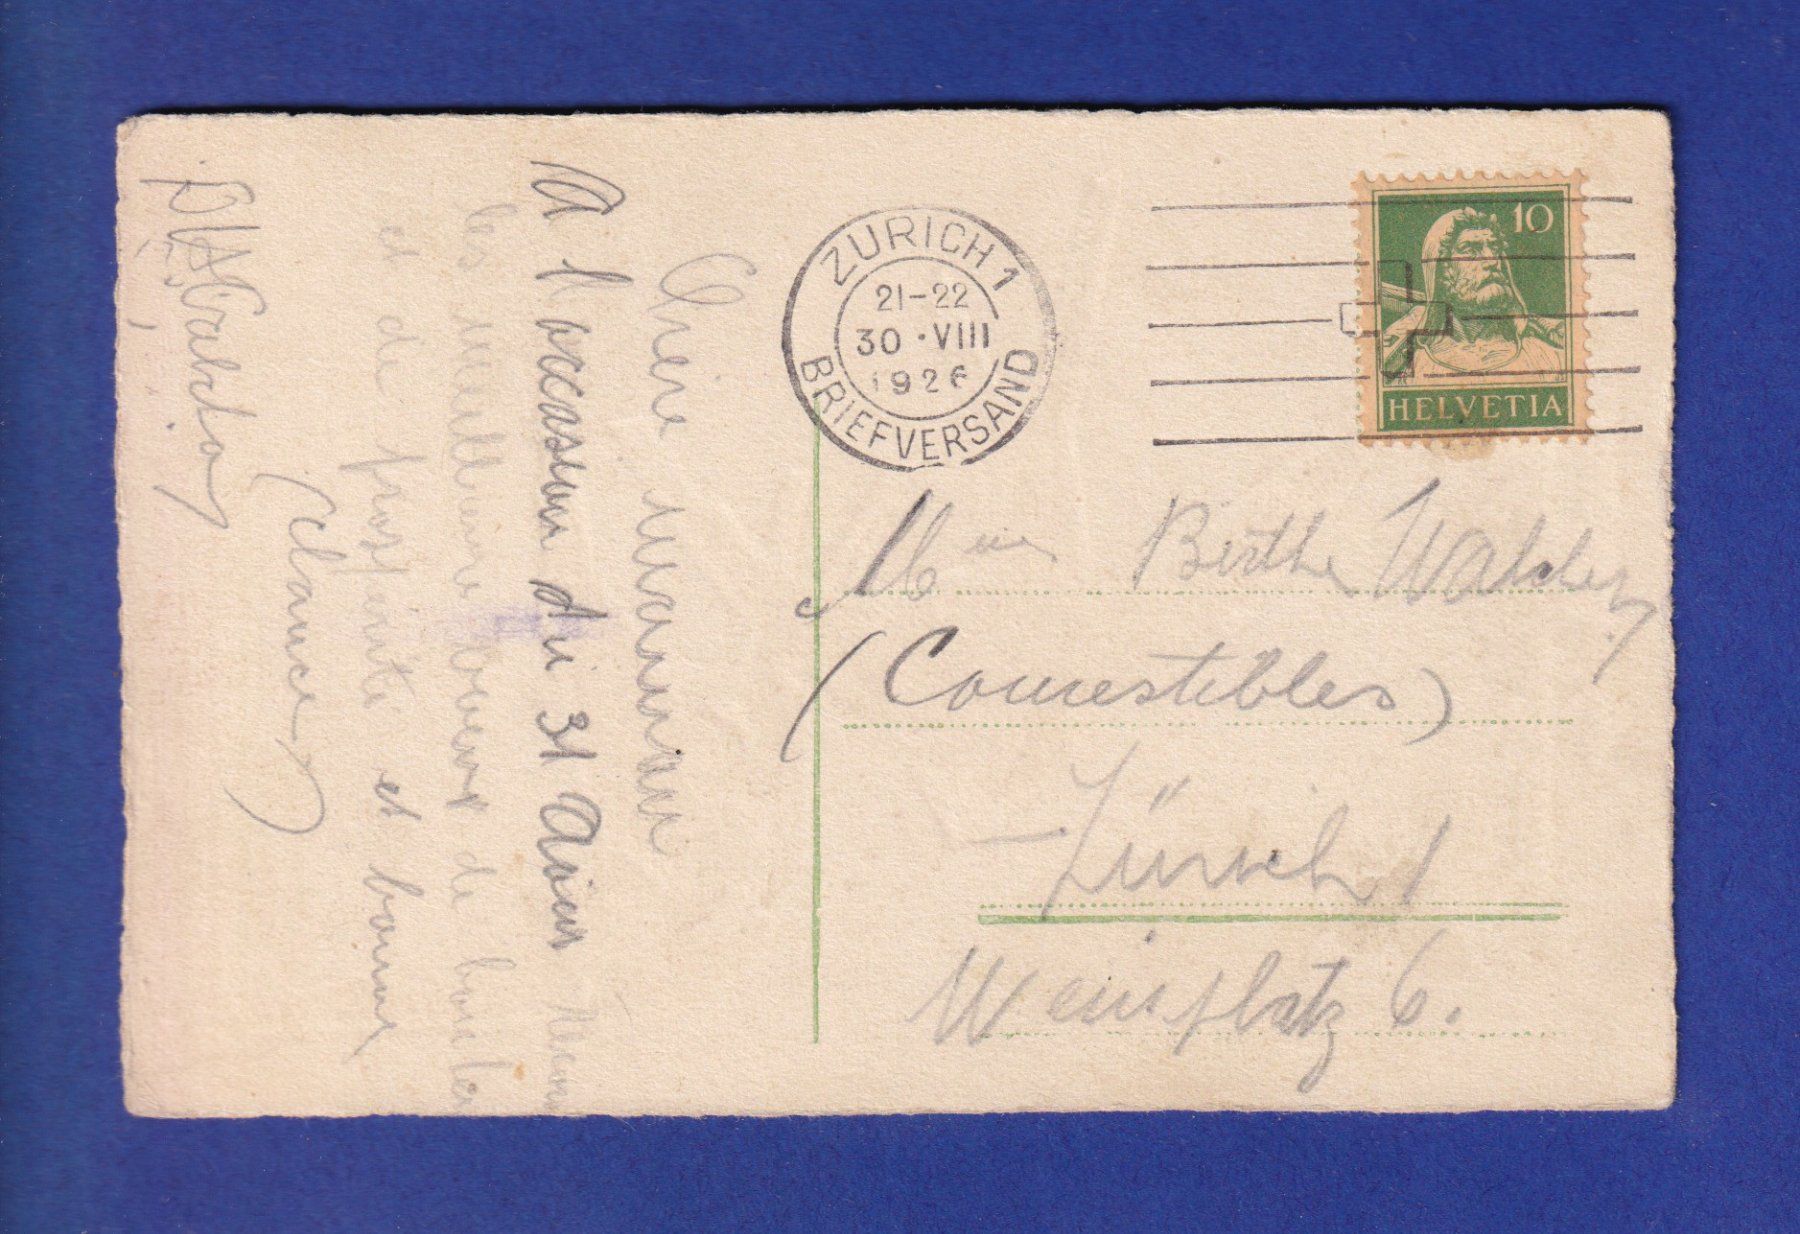 Chère maman
A l'occasion du 31 Août
les meilleurs vœux de
et de prospérité et bonne
chance
ZURICH 1
21-22
30·VIII
1926
BRIEFVERSAND
10
HELVETIA
Mme Berthe Walcher
(Comestibles)
Zürich 1
Weinplatz 6.